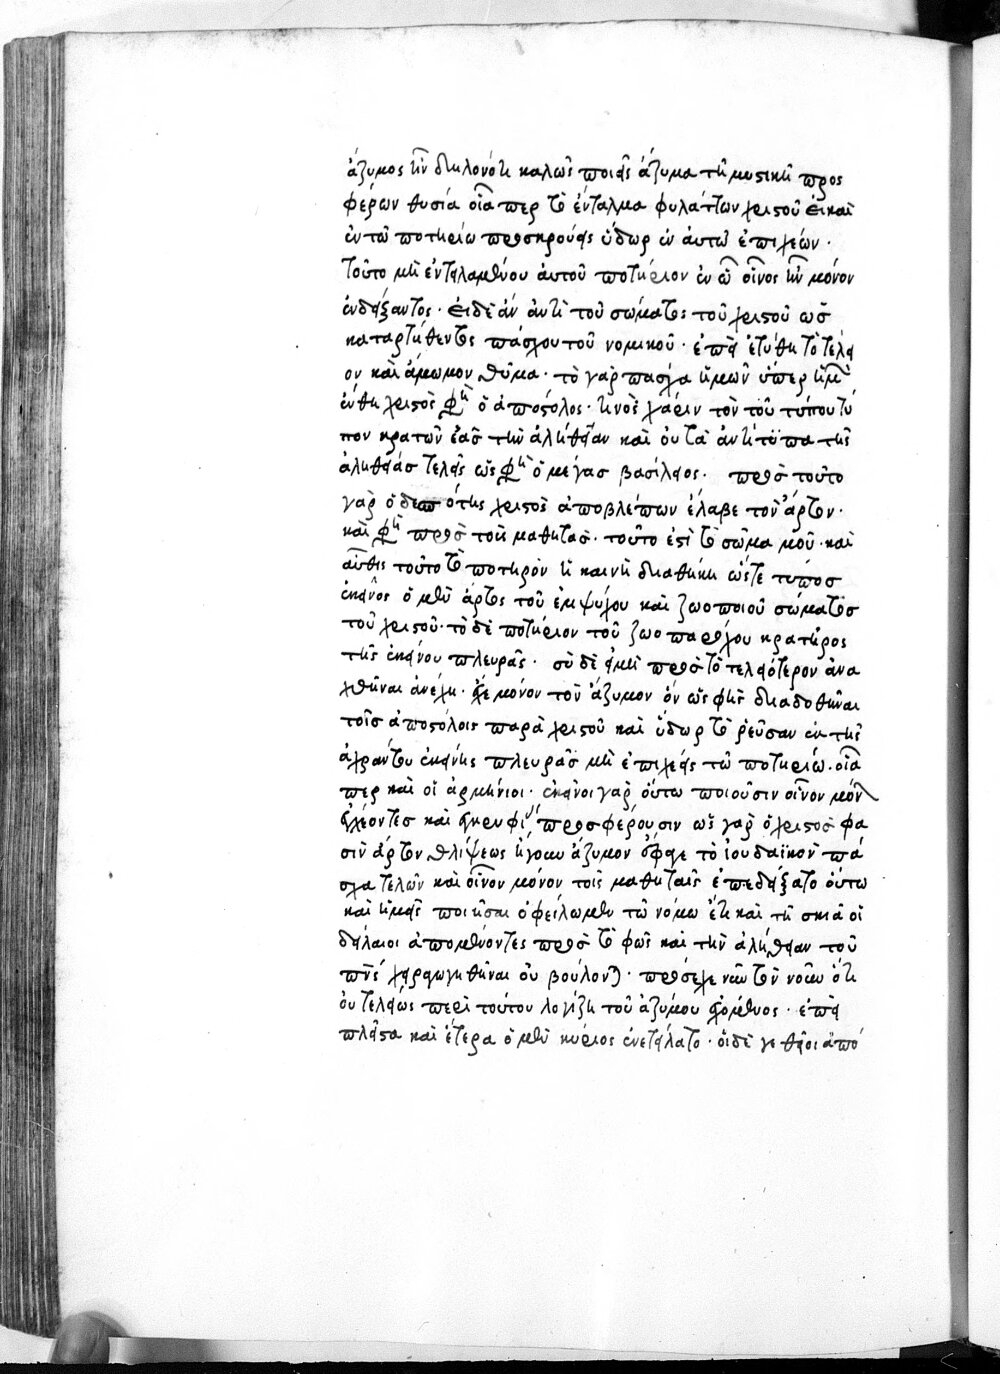 ἄζυμος ἦν δηλονότι καλῶς ποιεῖς ἄζυμα τῆ μυστικῆ προς
φέρων θυσία οἷα περ τὸ ἔνταλμα φυλάττων χριστοῦ εἰ καὶ
ἐν τῶ ποτηρίω προσκρούεις ὕδωρ ἐν αὐτῶ ἐπιχέων ·
τοῦτο μὴ ἐνταλαμένου αὐτοῦ ποτήριον ἐν ὧ οἶνος ἦν μόνον
ἐνδείξαντος · εἰ δὲ ἂν ἀντὶ τοῦ σώματος τοῦ χριστοῦ ὡς
καταρτήθεντος πάσχου τοῦ νομικοῦ · ἐπεὶ ἐτύθη τὸ τέλει
ον καὶ ἄμωμον θῦμα · τὸ γὰρ πασχα ἡμῶν ὑπερ ἡμῶν
ἐύθη χριστὸς φησὶ ὁ ἀποστολος · τινὸς χάριν τὸν τοῦ τύπου τύ
πον κρατῶν ἐᾶς τὴν ἀλήθειαν καὶ οὐ τὰ ἀντίτυπα τῆς
ἀληθείας τελεῖς ὥς φησὶ ὁ μέγας βασίλειος · πρὸς τοῦτο
γὰρ ὁ δεσπότης χριστὸς ἀποβλέπων ἔλαβε τὸν ἄρτον ·
καὶ φησὶ πρὸς τοὺς μαθητὰς · τοῦτο ἐστὶ τὸ σῶμα μοῦ · καὶ
αὖθις τοῦτο τὸ ποτηρὸν ἡ καινὴ διαθήκη ὥστε τύπος
ἐκεῖνος ὁ μὲν ἄρτος τοῦ ἐμψύχου καὶ ζωοποιοῦ σώματος
τοῦ χριστοῦ · τὸ δὲ ποτήριον τοῦ ζωοπαρόχου κρατῆρος
τῆς ἐκείνου πλευρᾶς · σὺ δὲ εἰ μὴ πρὸς τὸ τελειότερον ἀνα
χθῆναι ἀνέχη · ἔχε μόνον τὸν ἄζυμον ὃν ὥς φῂς διαδοθῆναι
τοῖς ἀποστόλοις παρὰ χριστοῦ καὶ ὕδωρ τὸ ῥεῦσαν ἐκ τῆς
ἀχράντου ἐκείνης πλευρᾶς μὴ ἐπιχέεις τῶ ποτηρίω · οἷα
περ καὶ οἱ ἀρμένιοι · ἐκεῖνοι γὰρ οὕτω ποιοῦσιν οἶνον μόνον
ἐγχέοντες καὶ προσφέρουσιν ὥς γὰρ ὁ χριστὸς φα
σὶν ἄρτον θλίψεως ἤγουν ἄζυμον ὄφαγε τὸ ἰουδαϊκὸν πά
σχα τελῶν καὶ οἶνον μόνον τοῖς μαθηταῖς ἐπεδείξατο οὕτω
καὶ ἡμεῖς ποιῆσαι ὀφείλωμεν τῶ νόμω ἔτι καὶ τῆ σκιᾶ οἱ
δείλαιοι ἀπομένοντες πρὸς τὸ φῶς καὶ τὴν ἀλήθειαν τοῦ
πνς χειραγωγηθῆναι οὐ βούλονται · πρόσεχε γοῦν τὸν νοῦν ὅτι
οὐ τελείως περὶ τούτου λογίζη τοῦ ἀζύμου · ἐπεὶ
πλεῖστα καὶ ἕτερα ὁ μὲν κύριος ἐνετείλατο · οἱ δέ γε θεῖοι ἀπό